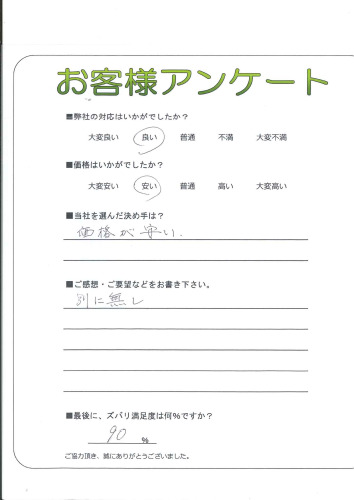 お客様アンケート
■弊社の対応はいかがでしたか？
大変良い 良い 普通 不満 大変不満
■価格はいかがでしたか？
大変安い 安い 普通 高い 大変高い
■当社を選んだ決め手は？
価格が安い.
■ご感想・ご要望などをお書き下さい。
別に無し
■最後に、ズバリ満足度は何%ですか？
90 %
ご協力頂き、誠にありがとうございました。